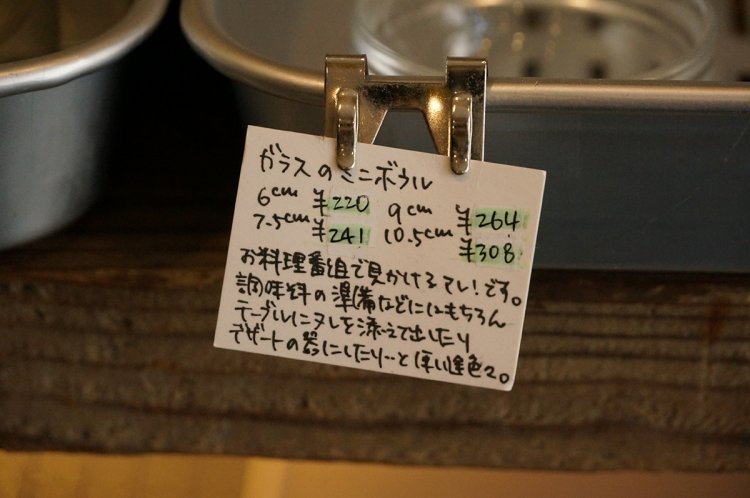 ガラスのミニボウル
6cm ¥220 9cm ¥264
7.5cm ¥241 10.5cm ¥308
お料理番組で見かけるてい!です。
調味料の準備などにはもちろん
テーブルにタレを添えて出したり
デザートの器にしたり…と